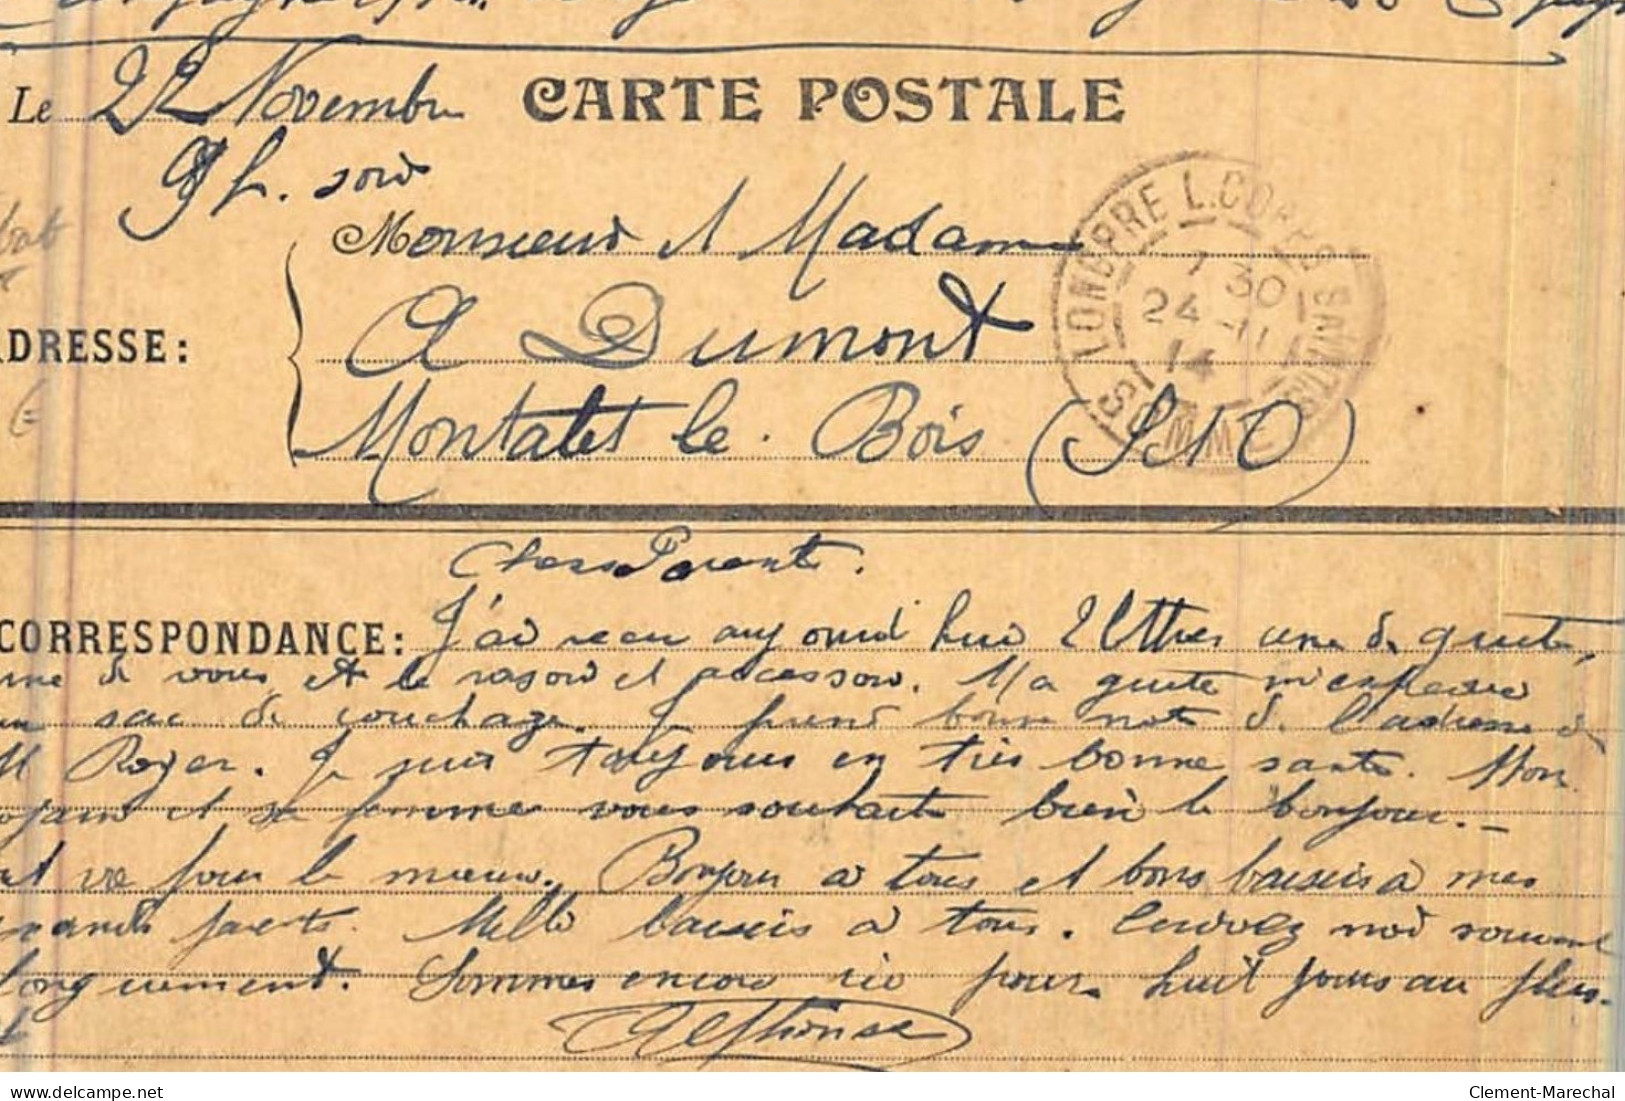 Le 22 Novembre CARTE POSTALE
9 h. soir
Monsieur et Madame
LONGPRE L. CORPS SAINTS
7 30
24 -11
14
SOMME
ADRESSE:
A Dumont
Montalet le Bois (S et O)
Chers Parents.
CORRESPONDANCE: J'ai recu aujourd hui 2 lettres une de
de vous et le rasoir et accessoir. Ma m'
sac de couchage. Je prend bonne note de l'adresse de
M Royer. Je suis toujours en très bonne santé. Mon
et sa femme vous souhaite bien le bonjour. -
pour le mieux. Bonjour à tous et bons baisers à mes
grands parents. Mille baisers à tous. moi souvent
longuement. Sommes encore ici pour huit jours au plus.
Alphonse
delcampe.net
Clement-Marechal